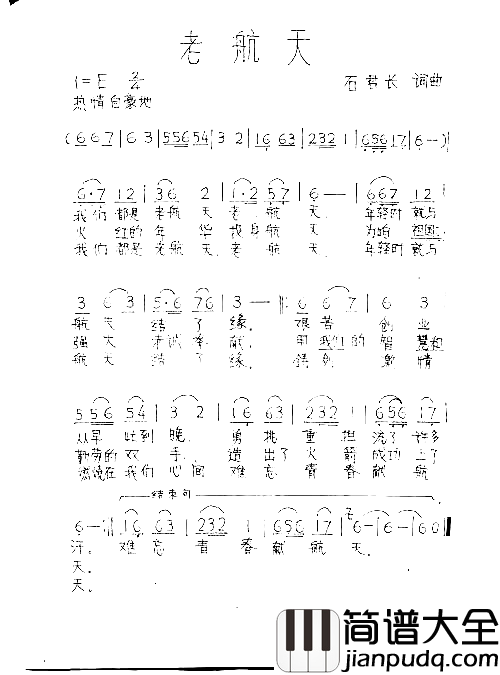 老航天
1=E 2/4
石君长 词曲
热情自豪地
(667|63|556 54|32|16 63|232 1|656 17|6-)|
6·7 12|36 2|1·2 57|6--|667 12|
我们都是老航天老航天.年轻时就与
火红的年华投身航天.为咱祖国
我们都是老航天老航天.年轻时就与
3 63|5·6 76|3--|66 7|6 3|
航天结了缘.艰苦创业
强大来试奉献.用我们的智慧和
航天结了缘.激情
556 54|32|16 63|232 1|656 17|
从早忙到晚.勇挑重担流了许多
勤劳的双手.造出了火箭成功上了
燃烧在我们心间难忘青春献航
结束句
6-:|16 63|232 1|656 17|6-|6-|60‖
汗.难忘青春献航天.
天.
天.
简谱大全
jianpudq.com